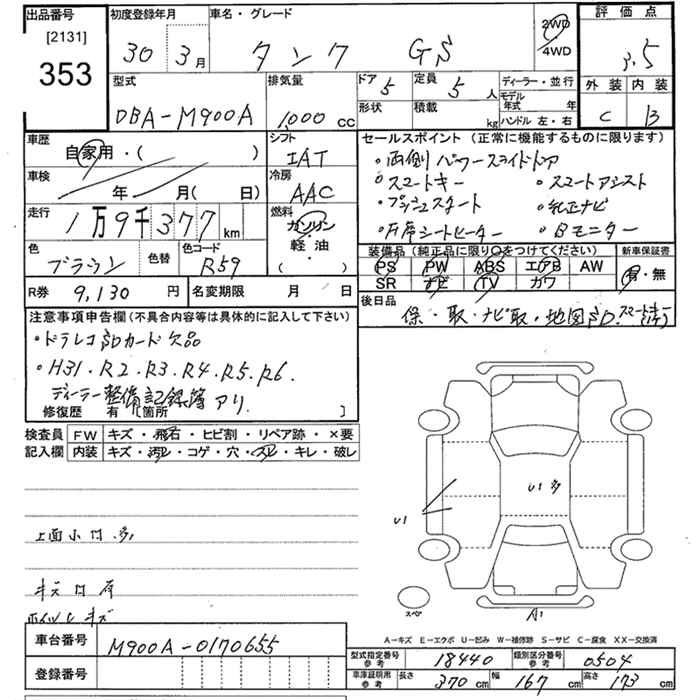 出品番号
[2131]
353
初度登録年月
30 3月
車名・グレード
タンク GS
2WD
4WD
評価点
3.5
外装 内装
C B
型式
DBA-M900A
排気量
1000 cc
ドア
5
定員
5 人
形状
積載
kg
ディーラー・並行
モデル年式 年
ハンドル 左・右
車歴
自家用・( )
車検
年 月( 日)
走行
1万9千377km
色
ブラウン
色替
色コード
R59
シフト
IAT
冷房
AAC
燃料
ガソリン
・
軽油
・
( )
R券
9,130 円
名変期限 月 日
セールスポイント(正常に機能するものに限ります)
・両側パワースライドドア
・スマートキー ・スマートアシスト
・プッシュスタート ・純正ナビ
・シートヒーター ・Bモニター
装備品(純正品に限り○をつけてください)
PS PW ABS エアB AW
SR ナビ TV カワ
新車保証書
有・無
後日品
保・取・ナビ取・地図SD.
注意事項申告欄(不具合内容等は具体的に記入して下さい)
・ドラレコSDカード欠品
・H31.R2.R3.R4.R5.R6.
ディーラー整備記録簿アリ.
修復歴 有[箇所 ]
検査員
記入欄
FW キズ・飛石・ヒビ割・リペア跡・×要
内装 キズ・汚レ・コゲ・穴・スレ・キレ・破レ
上面小凹多
キズ凹有
ホイルキズ
U1
U1多
スペア
A1
A-キズ E-エクボ U-凹み W-補修跡 S-サビ C-腐食 XX-交換済
車台番号
M900A-0170655
登録番号
型式指定番号
参考
18440
類別区分番号
参考
0504
車庫証明用
参考
長さ 370cm 幅 167cm 高さ 173cm